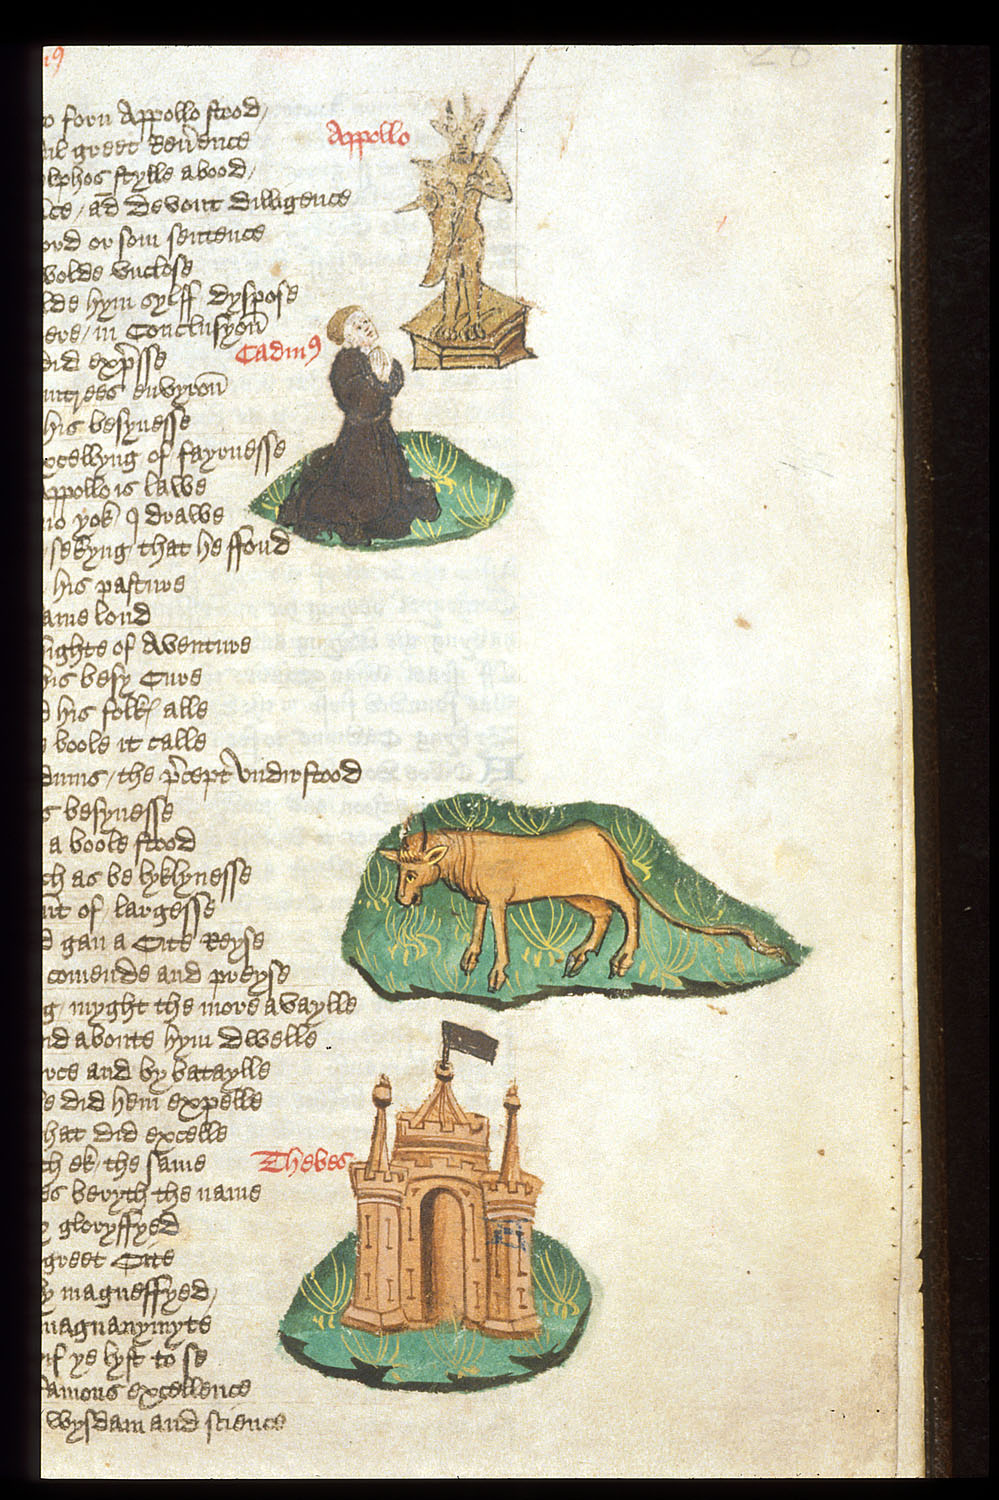 forn Appollo stood /
greet Reu'ence
stylle abood /
ad Devout Dilligence
or som sentence
wolde vnclose
hym sylff dyspose
in Conclusyon
did exp'sse
envyron
his besynesse
of fayrnesse
Appollo is lawe
no yok drawe
sekyng that he ffond
his pasture
lond
of Aventure
his besy Cure
his folk alle
boole it calle
the p'cept vndirstood
besynesse
a boole stood
as be lyklynesse
of largesse
gan a Cite Reyse
comende and preyse
myght the more avaylle
aboute hym dwelle
and by bataylle
did hem expelle
that did excelle
ek the same
beryth the name
gloryffyed
greet Cite
magneffyed /
magnanymyte
yif ye lyst to se
famous excellence
wysdam and science
Appollo
Cadm9
Thebes
28